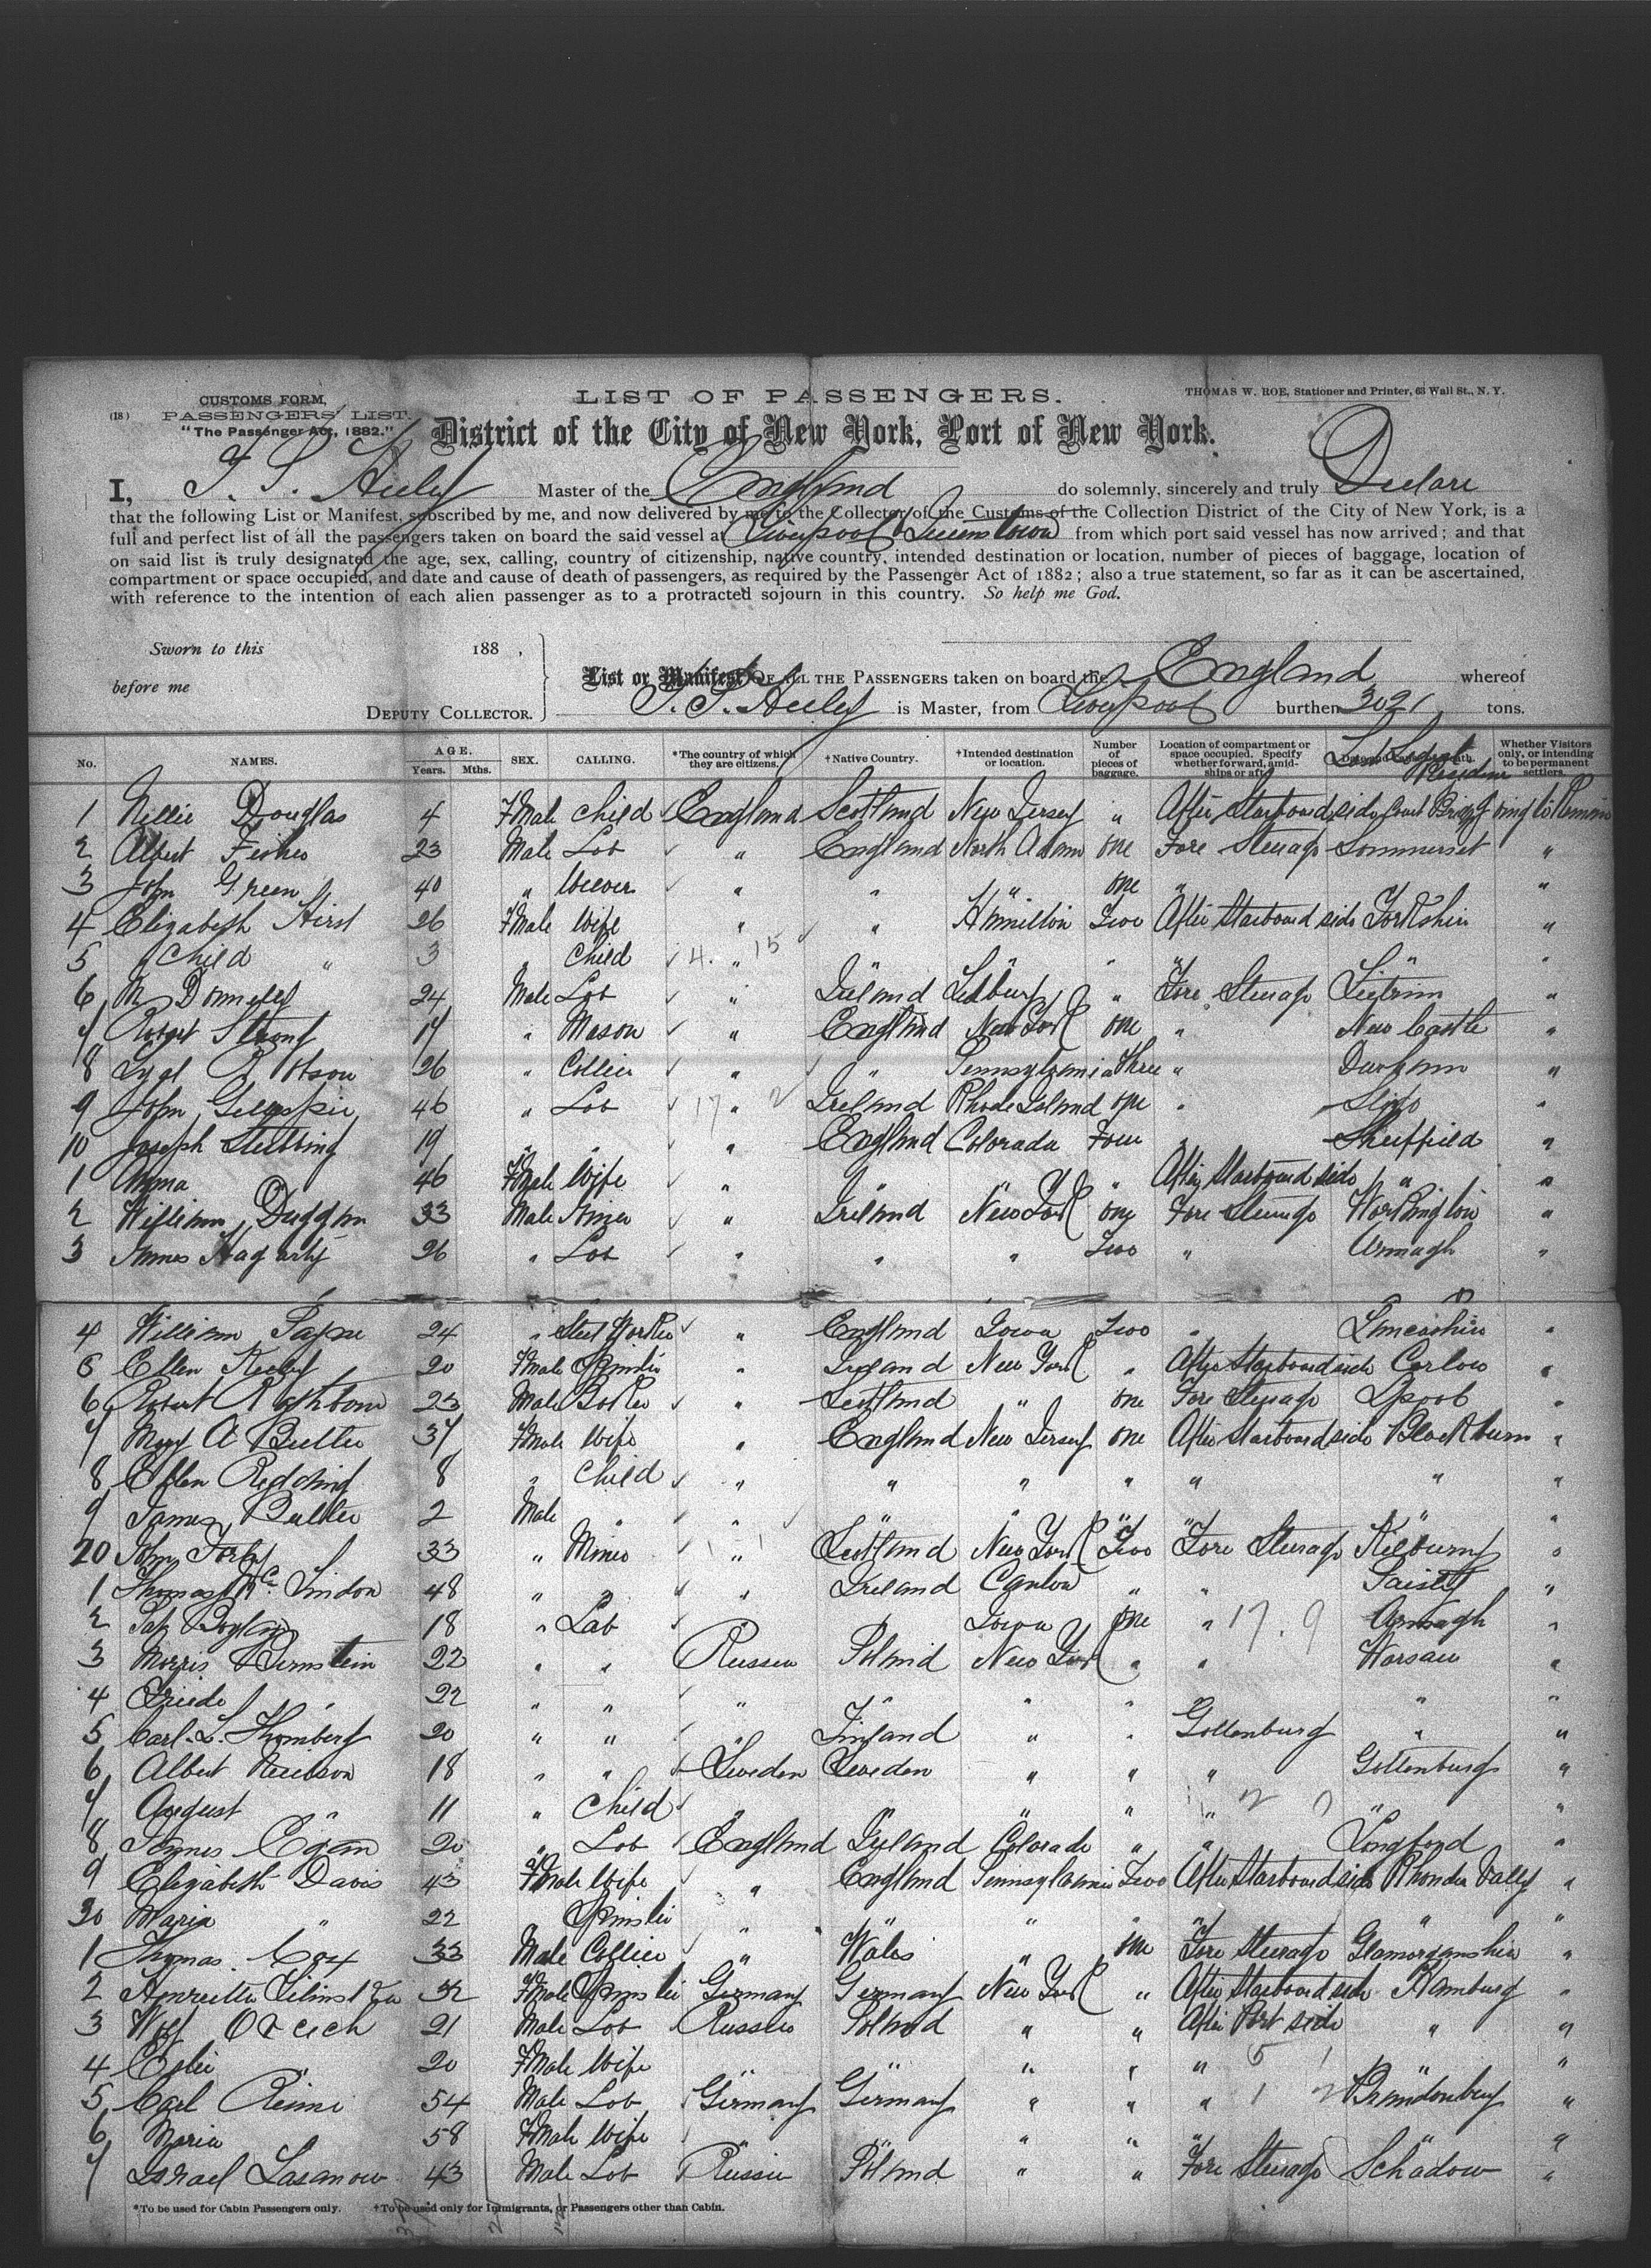 CUSTOMS FORM,
LIST OF PASSENGERS.
THOMAS W. ROE, Stationer and Printer, 63 Wall St., N. Y.
(18) PASSENGERS' LIST.
"The Passenger Act, 1882."
District of the City of New York, Port of New York.
I, Master of the England do solemnly, sincerely and truly Declare
that the following List or Manifest, subscribed by me, and now delivered by me to the Collector of the Customs of the Collection District of the City of New York, is a
full and perfect list of all the passengers taken on board the said vessel at Liverpool & Queenstown from which port said vessel has now arrived; and that
on said list is truly designated the age, sex, calling, country of citizenship, native country, intended destination or location, number of pieces of baggage, location of
compartment or space occupied, and date and cause of death of passengers, as required by the Passenger Act of 1882; also a true statement, so far as it can be ascertained,
with reference to the intention of each alien passenger as to a protracted sojourn in this country. So help me God.
Sworn to this 188 ,
before me
DEPUTY COLLECTOR.
List or Manifest OF ALL THE PASSENGERS taken on board the England whereof
is Master, from Liverpool burthen 3021 tons.
No. NAMES. AGE. Years. Mths. SEX. CALLING. *The country of which they are citizens. †Native Country. †Intended destination or location. Number of pieces of baggage. Location of compartment or space occupied. Specify whether forward, amidships or aft. Last Legal Residence Whether Visitors only, or intending to be permanent settlers.
1 Nellie Douglas 4 FMale Child England Scotland New Jersey " After Starboard side
2 Albert Fisher 23 Male Lab " England North Adam one Fore Steerage Sommerset "
3 John Green 40 " Weaver " " " one " "
4 Elizabeth Hirst 26 FMale Wife " " Hamilton Two After Starboard side Yorkshire "
5 Child " 3 " Child " " " " " " "
6 M Donnelly 24 Male Lab " Ireland " Fore Steerage Lietrim "
7 Robert Strong 17 " Mason " England New York one " New Castle "
8 26 " Collier " " Pennsylvania Three " Durham "
9 John Gillespie 46 " Lab " Ireland Rhode Island one " Sligo "
10 Joseph Stebbing 19 " " " England Colorado Four " Sheffield "
1 Anna " 46 FMale Wife " " " " After Starboard side " "
2 William Duggan 33 Male Miner " Ireland New York one Fore Steerage Workington "
3 James Hagarty 26 " Lab " " " Two " Armagh "
4 William Payne 24 " Steel Worker " England Iowa Two " Lancashire "
5 Ellen Kelly 20 FMale Spinster " Ireland New York " After Starboard side Carlow "
6 Robert Rathbone 23 Male " Scotland " one Fore Steerage Lpool "
7 Mary A Butler 37 FMale Wife " England New Jersey one After Starboard side Blackburn "
8 Ellen Redding 8 " Child " " " " " " "
9 James Butler 2 Male " " " " " " " "
20 John 33 " Miner " Scotland New York Two Fore Steerage "
1 Thomas 48 " " " Ireland Canton " " Paisley "
2 Pat Boylan 18 " Lab Iowa one " Armagh "
3 Morris Bernstein 22 " " Russia Poland New York " " Warsaw "
4 " 22 " " " " " " " " "
5 Carl L. 20 " " " Finland " " Gottenburg " "
6 Albert 18 " " Sweden Sweden " " " Gottenburg "
7 August " 11 " Child " " " " " " "
8 James Egan 20 " Lab England Ireland Colorado " " Longford "
9 Elizabeth Davis 43 FMale Wife " England Pennsylvania Two After Starboard side Rhonda Vally "
30 Maria " 22 " Spinster " " " " " " "
1 Thomas Cox 33 Male Collier " Wales " one Fore Steerage Glamorganshire "
2 Henrietta 32 FMale Spinster Germany Germany New York " After Starboard side Hamburg "
3 Wolf 21 Male Lab Russia Poland " " After Port side " "
4 " 20 FMale Wife " " " " " " "
5 Carl 54 Male Lab Germany Germany " " " Brandenburg "
6 Maria " 58 FMale Wife " " " " " " "
7 Israel Lasanow 43 Male Lab Russia Poland " " Fore Steerage Schadow "
*To be used for Cabin Passengers only. †To be used only for Immigrants, or Passengers other than Cabin.